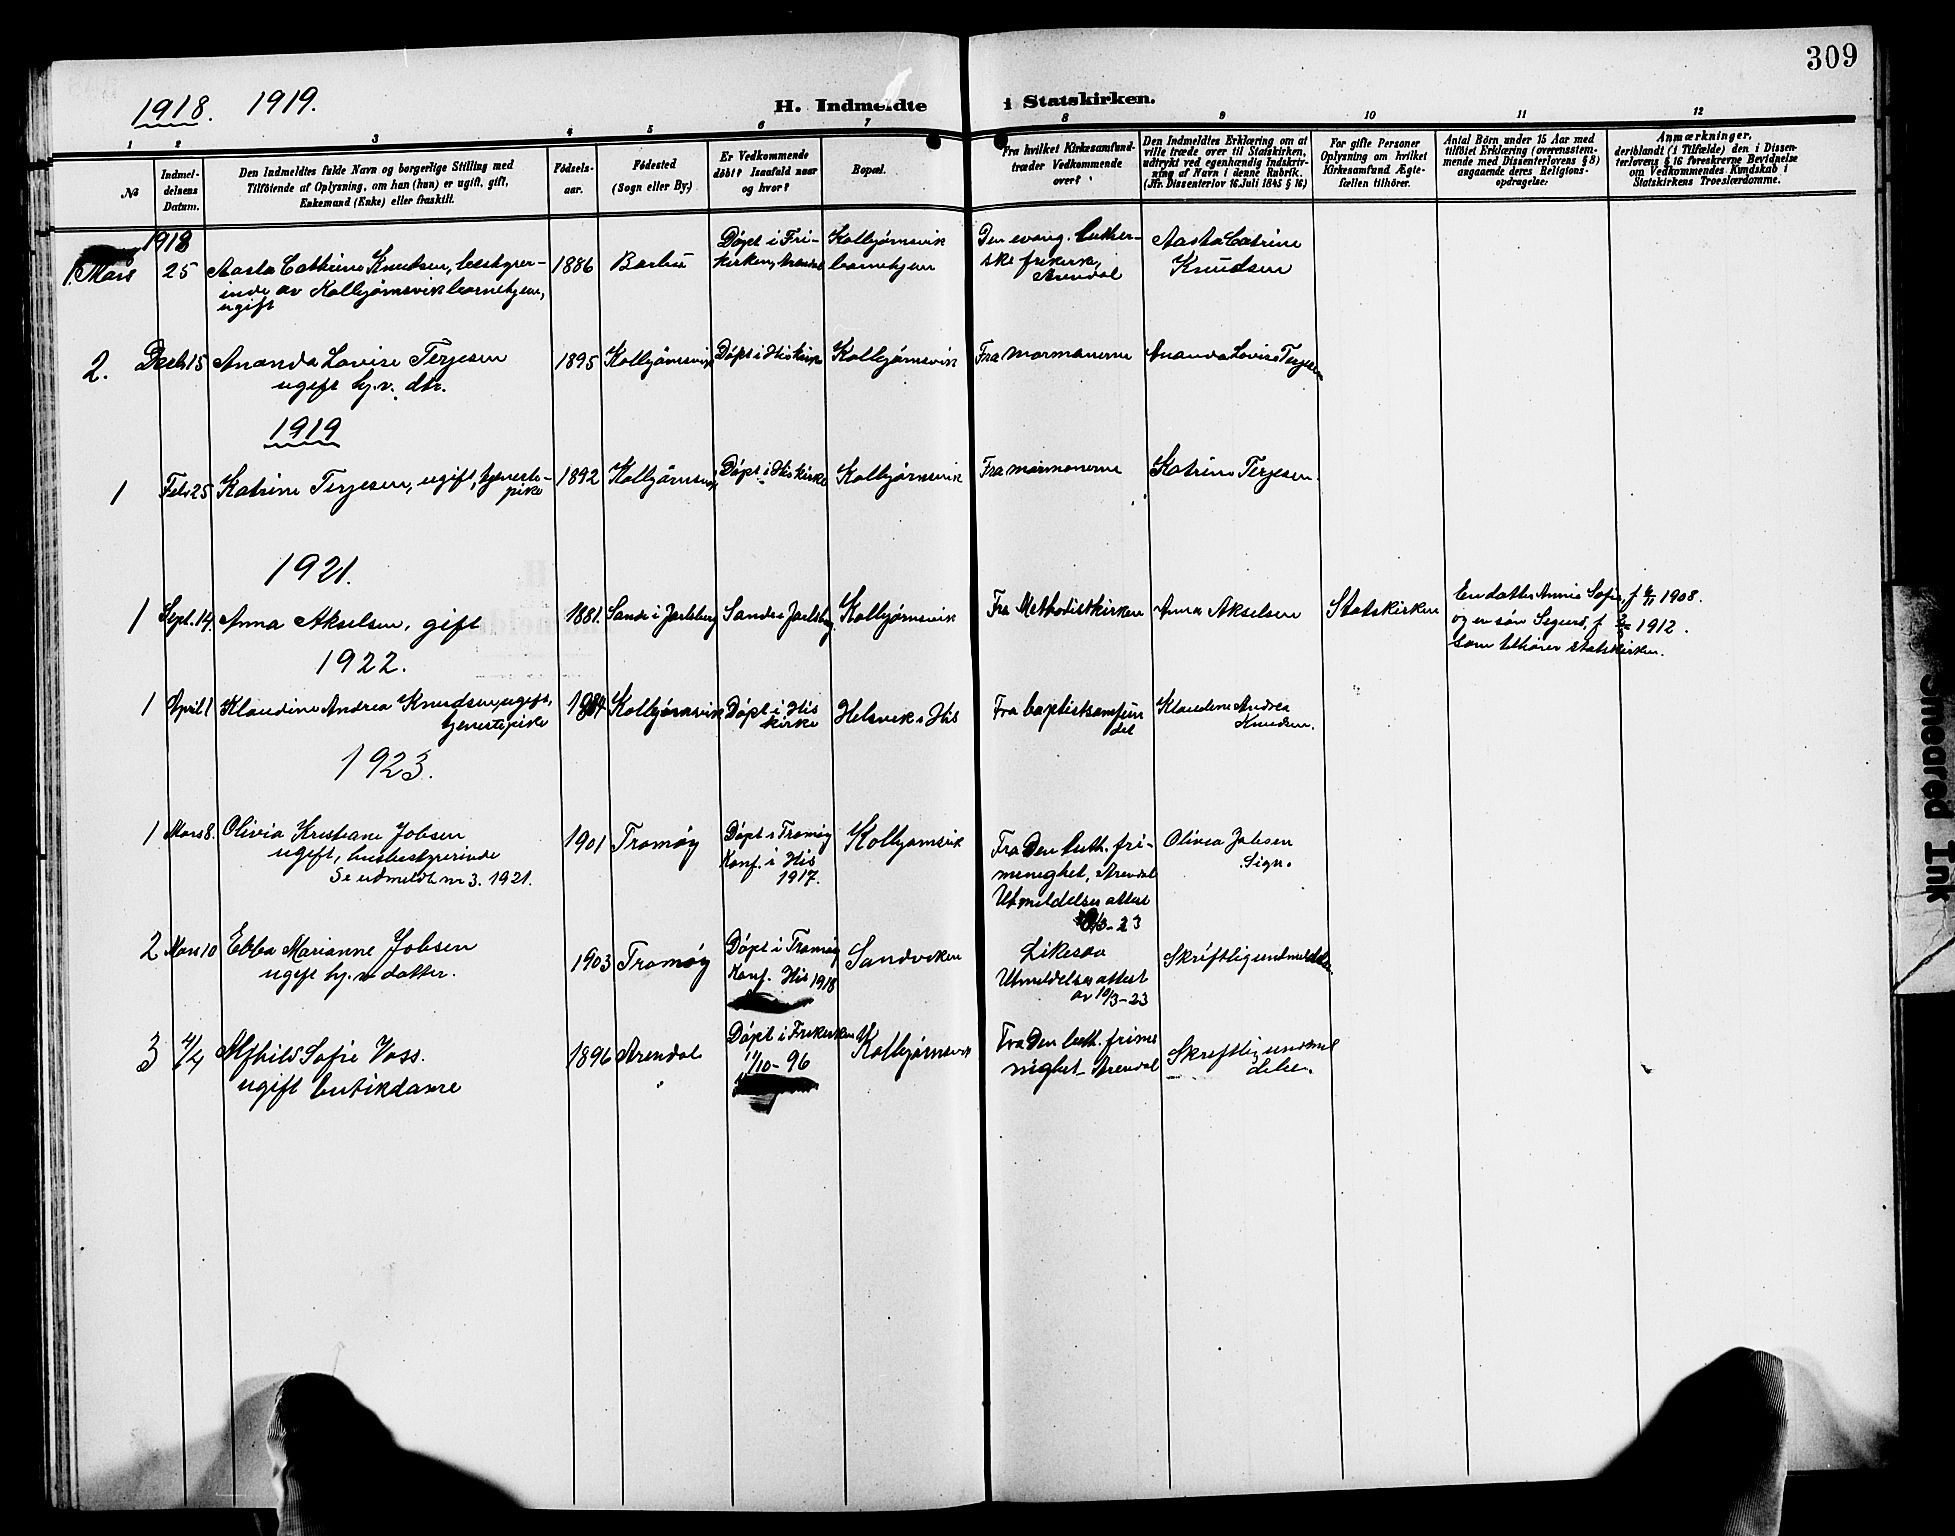 309
1918. 1919.
H. Indmeldte i Statskirken.
1 2 3 4 5 6 7 8 9 10 11 12
No
Indmel-
delsens
Datum.
Den Indmeldtes fulde Navn og borgerlige Stilling med
Tilföiende af Oplysning, om han (hun) er ugift, gift,
Enkemand (Enke) eller fraskilt.
Födsels-
aar.
Födested
(Sogn eller By)
Er Vedkommende
döbt? Isaafald naar
og hvor?
Bopæl.
Fra hvilket Kirkesamfund
træder Vedkommende
over?
Den Indmeldtes Erklæring om at
ville træde over til Statskirken,
udtrykt ved egenhændig Indskriv-
ning af Navn i denne Rubrik.
(Jfr. Dissenterlov 16. Juli 1845 § 16)
For gifte Personer
Oplysning om hvilket
Kirkesamfund Ægte-
fællen tilhörer.
Antal Börn under 15 Aar med
tilföiet Erklæring (overensstem-
mende med Dissenterlovens § 8)
angaaende deres Religions-
opdragelse.
Anmærkninger,
deriblandt (i Tilfælde) den i Dissen-
terlovens § 16 foreskrevne Bevidnelse
om Vedkommendes Kundskab i
Statskirkens Troeslærdomme.
1918
1. Mars 25 Aasta Cathrine Knudsen, bestyrer-
inde av Kolbjørnsvik barnehjem,
ugift
1886 Barbu
Døpt i Fri-
kirken, Arendal
Kolbjørnsvik
barnehjem
Den evang. luther-
ske frikirke,
Arendal
Aasta Catrine
Knudsen
2. Decbr 15 Ananda Lovise Terjesen
ugift hj.v. dtr.
1895 Kolbjørnsvik Døpt i His kirke Kolbjørnsvik Fra mormonerne Ananda Lovise Terjesen
1919
1 Feb 25 Katrine Terjesen, ugift, tjeneste-
pike
1892 Kolbjørnsvik Døpt i His kirke Kolbjørnsvik Fra mormonerne Katrine Terjesen.
1921.
1 Sept. 14. Anna Akselsen, gift 1881. Sande i Jarlsberg Sande i Jarlsberg. Kolbjørnsvik Fra Methodistkirken Anna Akselsen Statskirken
En datter Annie Sofie, f. 1908.
og en søn Sigurd, f. 1912.
som tilhører statskirken.
1922.
1 April 1 Klaudine Andrea Knudsen, ugift,
tjenestepike
Kolbjørnsvik
Døpt i His
kirke
Helsvik i His
Fra baptistsamfun
det
Klaudine Andrea
Knudsen.
1923.
1 Mars 8. Olivia Kristiane Jobsen
ugift, husbestyrerinde
Se utmeldt nr 3. 1921.
1901 Tromøy
Døpt i Tromøy
Konf. i His
1917.
Kolbjørnsvik
Fra Den luth. fri-
menighet, Arendal
Utmeldelses attest
/3-23
Olivia Jobsen
Sign.
2 Mars 10 Ebba Marianne Jobsen
ugift hj.v. datter.
1903 Tromøy
Døpt i Tromøy
Konf. His 1918
Sandviken
Likesaa
Utmeldelses attest
av 10/3-23
Skriftlig indmeldelse.
3 4/4 Alfhild Sofie Voss.
ugift butikdame
1896 Arendal
Døpt i Frikirken
11/10-96
Kolbjørnsvik
Fra Den luth. frime
nighet - Arendal
Skriftlig indmel
delse.
Smeared Ink